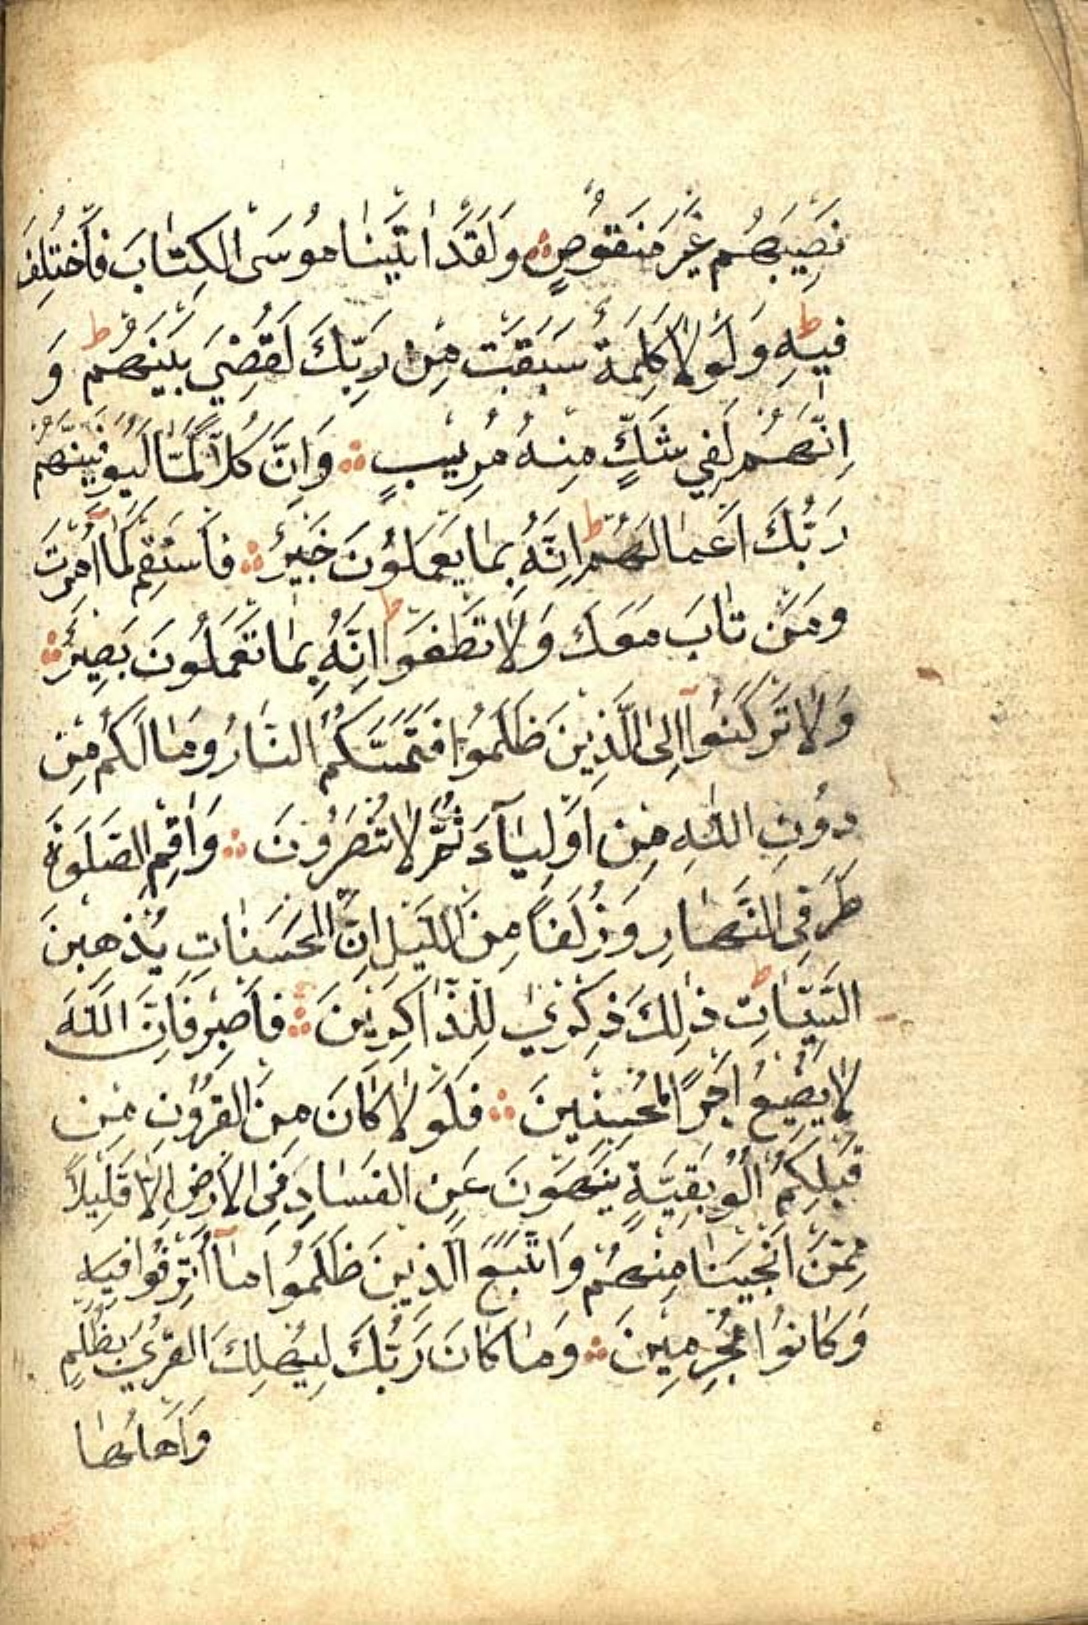 نَصِيبَهُم غَيْرَ مَنْقُوصٍ وَلَقَدْ اٰتَيْنَا مُوسَى الْكِتَابَ فَاخْتُلِفَ
فِيهِ ط وَلَوْلَا كَلِمَةٌ سَبَقَتْ مِنْ رَبِّكَ لَقُضِيَ بَيْنَهُمْ ط وَ
اِنَّهُمْ لَفِي شَكٍّ مِنْهُ مُرِيبٍ وَاِنَّ كُلًّا لَمَّا لَيُوَفِّيَنَّهُمْ
رَبُّكَ اَعْمَالَهُمْ ط اِنَّهُ بِمَا يَعْمَلُونَ خَبِيرٌ فَاسْتَقِمْ كَمَا اُمِرْتَ
وَمَنْ تَابَ مَعَكَ وَلَا تَطْغَوْا ط اِنَّهُ بِمَا تَعْمَلُونَ بَصِيرٌ
وَلَا تَرْكَنُوا اِلَى الَّذِينَ ظَلَمُوا فَتَمَسَّكُمُ النَّارُ وَمَا لَكُمْ مِنْ
دُونِ اللّٰهِ مِنْ اَوْلِيَآءَ ثُمَّ لَا تُنْصَرُونَ وَاَقِمِ الصَّلَوةَ
طَرَفَيِ النَّهَارِ وَزُلَفًا مِنَ اللَّيْلِ اِنَّ الْحَسَنَاتِ يُذْهِبْنَ
السَّيِّئَاتِ ط ذٰلِكَ ذِكْرٰي لِلذَّاكِرِينَ فَاصْبِرْ فَاِنَّ اللّٰهَ
لَا يُضِيعُ اَجْرَ الْمُحْسِنِينَ فَلَوْلَا كَانَ مِنَ الْقُرُونِ مِنْ
قَبْلِكُمْ اُلُو بَقِيَّةٍ يَنْهَوْنَ عَنِ الْفَسَادِ فِي الْاَرْضِ اِلَّا قَلِيلًا
مِمَّنْ اَنْجَيْنَا مِنْهُمْ وَاتَّبَعَ الَّذِينَ ظَلَمُوا مَآ اُتْرِفُوا فِيهِ
وَكَانُوا مُجْرِمِينَ وَمَا كَانَ رَبُّكَ لِيُهْلِكَ الْقُرٰي بِظُلْمٍ
وَاَهْلُهَا